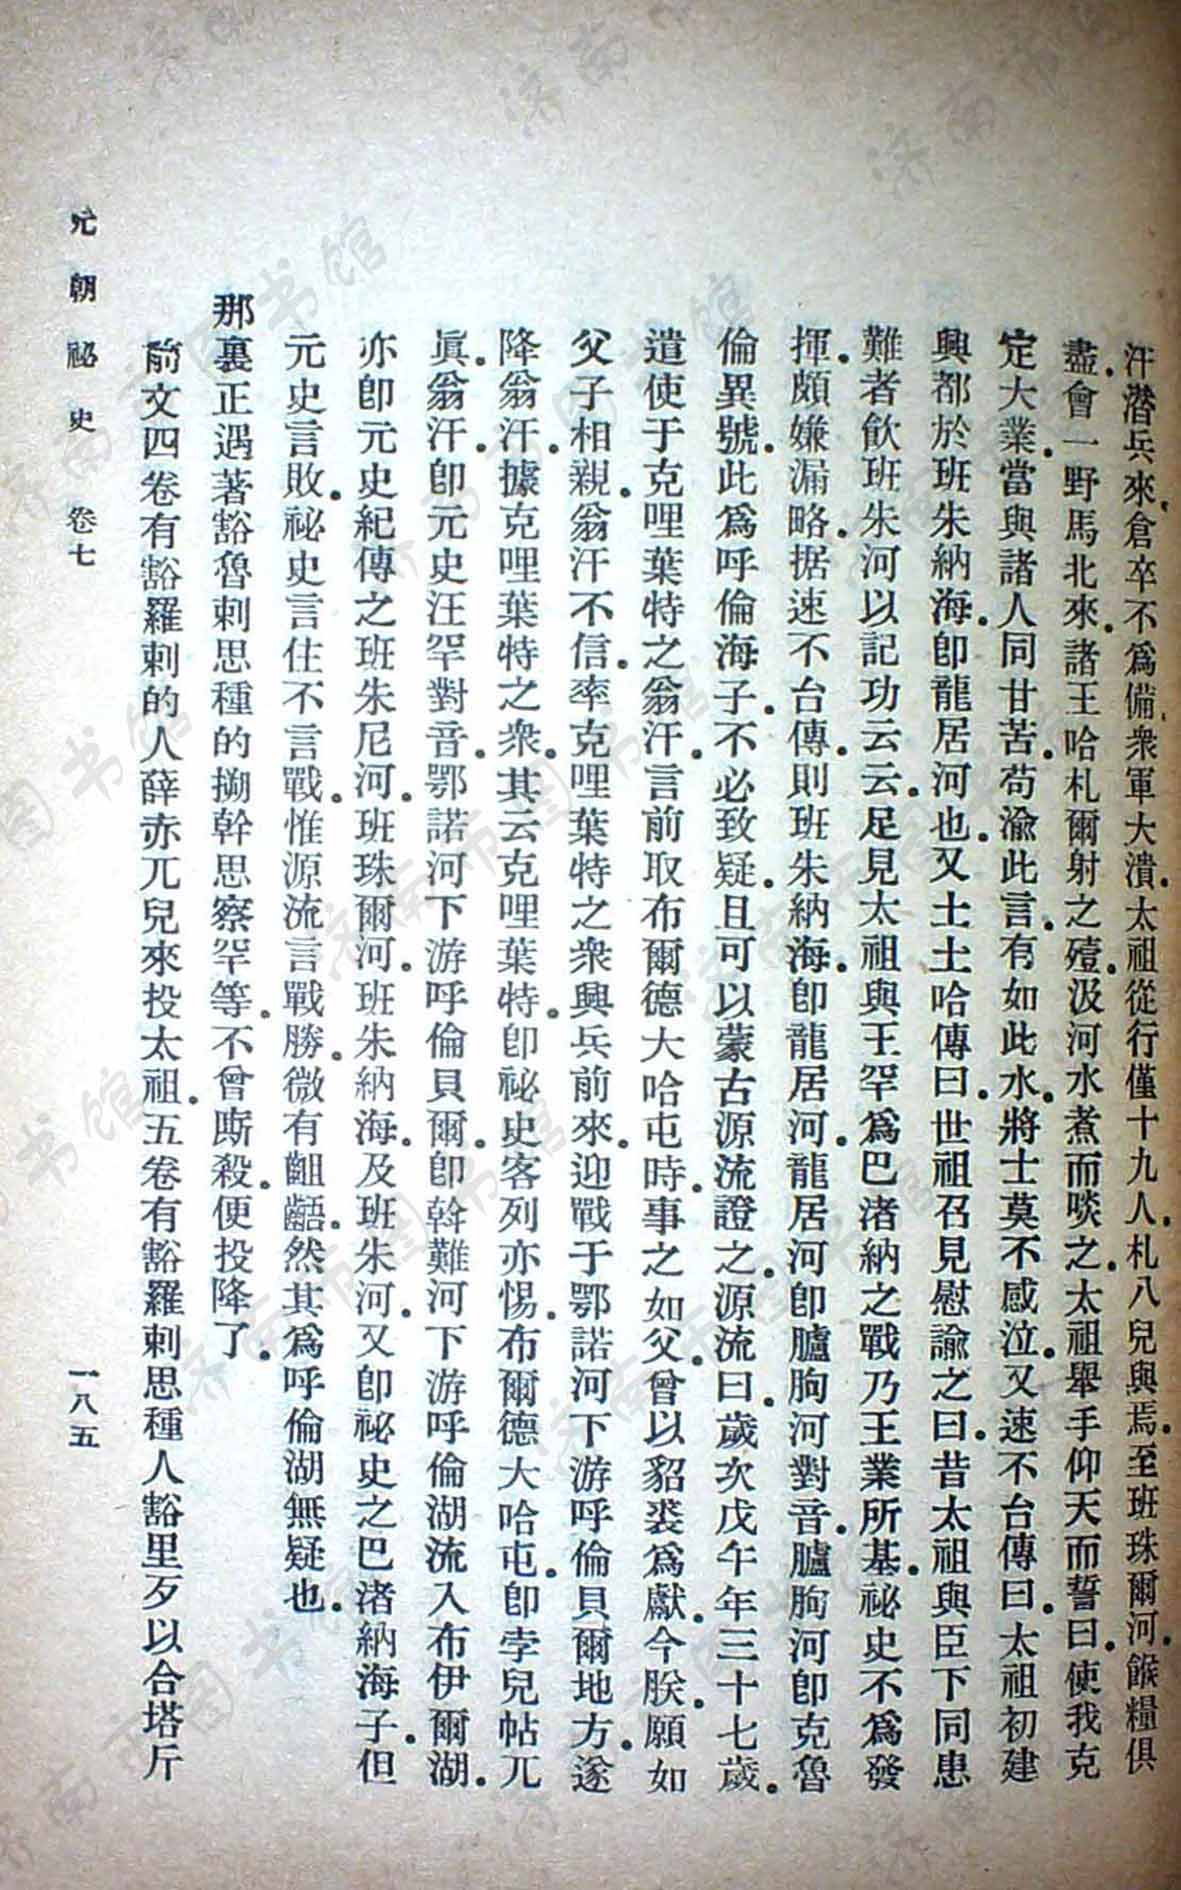 汗潛兵來。倉卒不爲備。衆軍大潰。太祖從行僅十九人。札八兒與焉。至班珠爾河。餱糧俱
盡。會一野馬北來。諸王哈札爾射之殪。汲河水煮而啖之。太祖舉手仰天而誓曰。使我克
定大業。當與諸人同甘苦。苟渝此言。有如此水。將士莫不感泣。又速不台傳曰。太祖初建
興都於班朱納海。卽龍居河也。又土土哈傳曰。世祖召見慰諭之曰。昔太祖與臣下同患
難者飮班朱河以記功云云。足見太祖與王罕爲巴渚納之戰乃王業所基。祕史不爲發
揮。頗嫌漏略。据速不台傳。則班朱納海。卽龍居河。龍居河卽臚朐河對音。臚朐河卽克魯
倫異號。此爲呼倫海子。不必致疑。且可以蒙古源流證之。源流曰。歲次戊午年三十七歲。
遣使于克哩葉特之翁汗。言前取布爾德大哈屯時。事之如父。曾以貂裘爲獻。今朕。願如
父子相親。翁汗不信。率克哩葉特之衆興兵前來。迎戰于鄂諾河下游呼倫貝爾地方。遂
降翁汗。據克哩葉特之衆。其云克哩葉特。卽祕史客列亦惕。布爾德大哈屯。卽孛兒帖兀
眞。翁汗。卽元史汪罕對音。鄂諾河下游呼倫貝爾。卽斡難河下游呼倫湖流入布伊爾湖。
亦卽元史紀傳之班朱尼河。班珠爾河。班朱納海。及班朱河。又卽祕史之巴渚納海子。但
元史言敗。祕史言住不言戰。惟源流言戰勝。微有齟齬。然其爲呼倫湖無疑也。
那裏正遇著豁魯剌思種的搠斡思察罕等。不曾廝殺。便投降了。
前文四卷有豁羅剌的人薛赤兀兒來投太祖。五卷有豁羅剌思種人豁里歹以合塔斤
元朝祕史 卷七
一八五
济南市图书馆